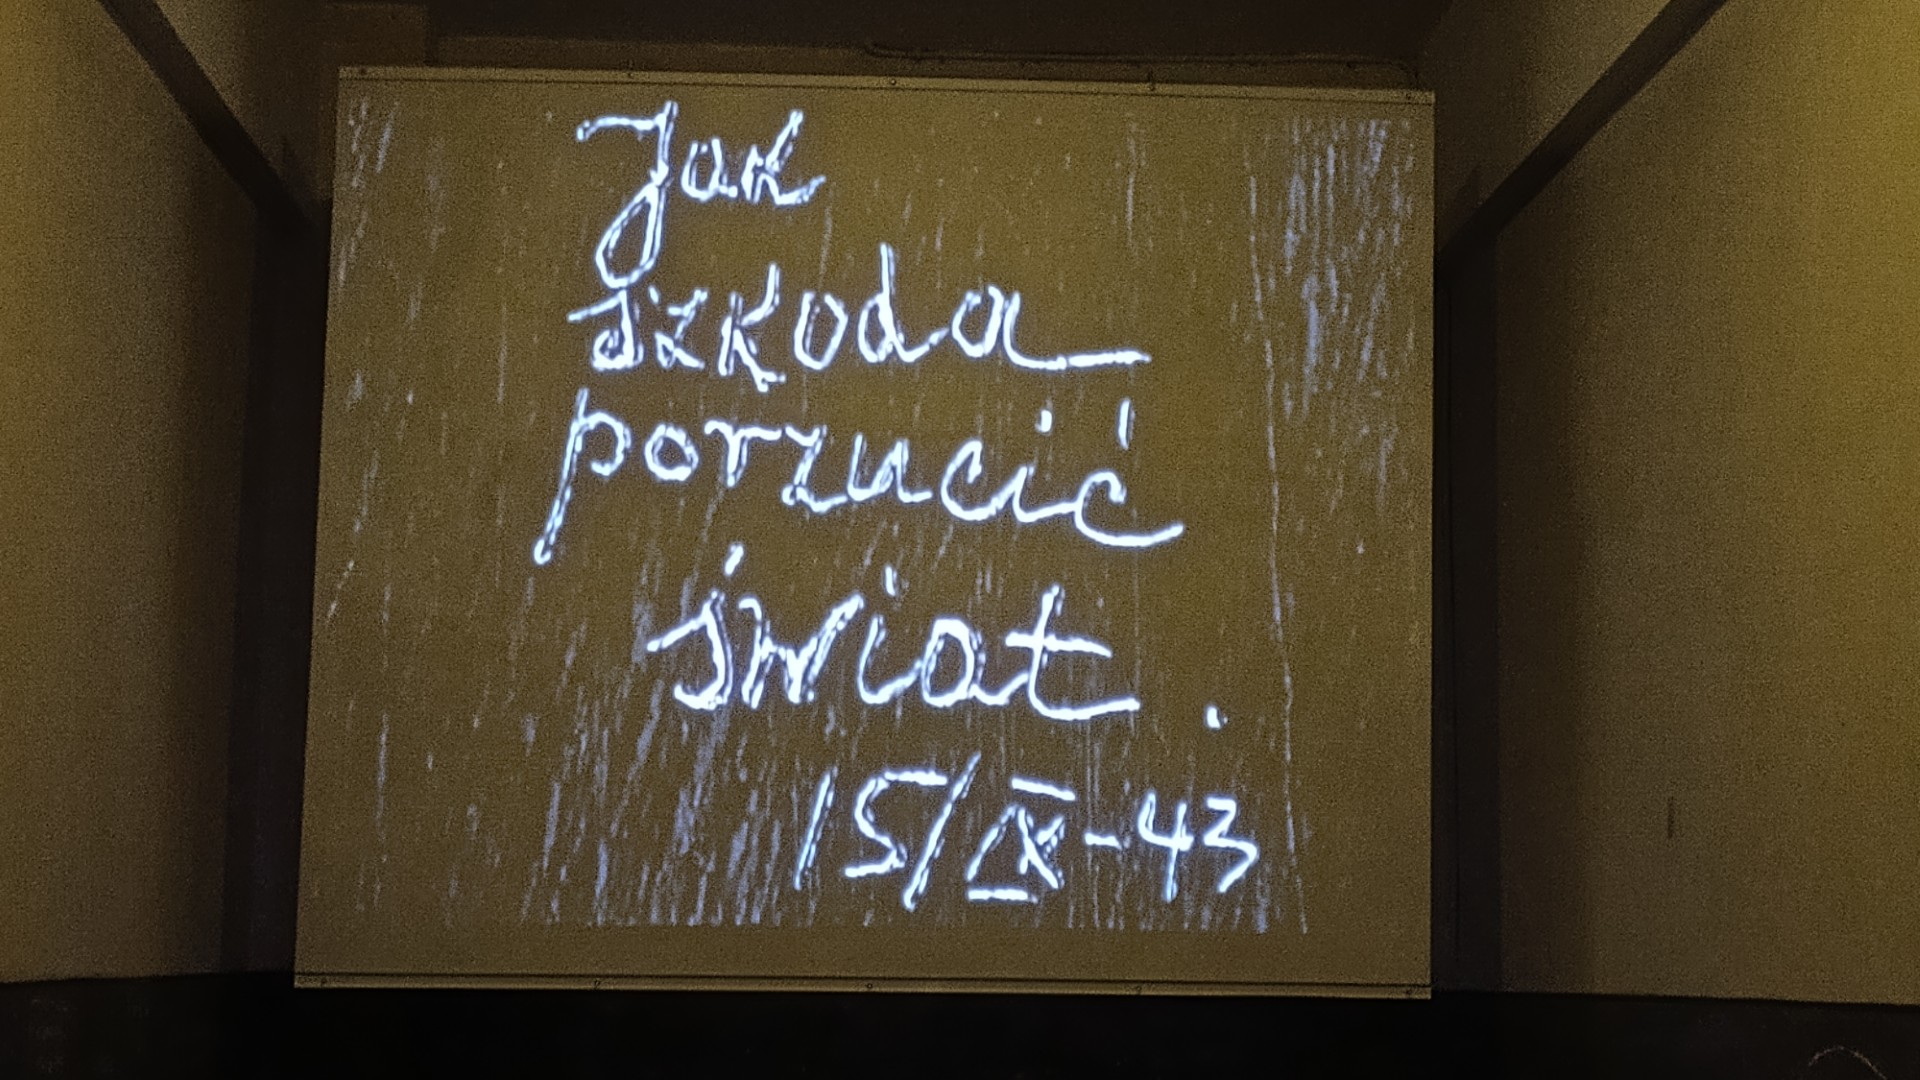 Jak
szkoda
porzucić
świat.
15/IX-43